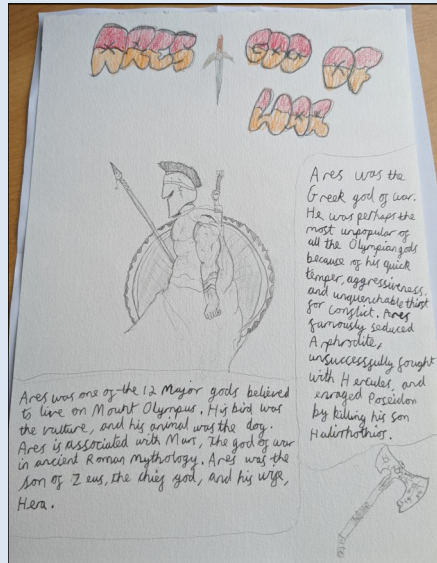 ARES GOD OF
WAR
Ares was the
Greek god of war.
He was perhaps the
most unpopular of
all the Olympian gods
because of his quick
temper, aggressiveness,
and unquenchable thirst
for conflict. Ares
famously seduced
Aphrodite,
unsuccessfully fought
with Hercules, and
enraged Poseidon
by killing his son
Halirhothios.
Ares was one of the 12 Major gods believed
to live on Mount Olympus. His bird was
the vulture, and his animal was the dog.
Ares is associated with Mars, the god of war
in ancient Roman Mythology. Ares was the
son of Zeus, the chief god, and his wife,
Hera.